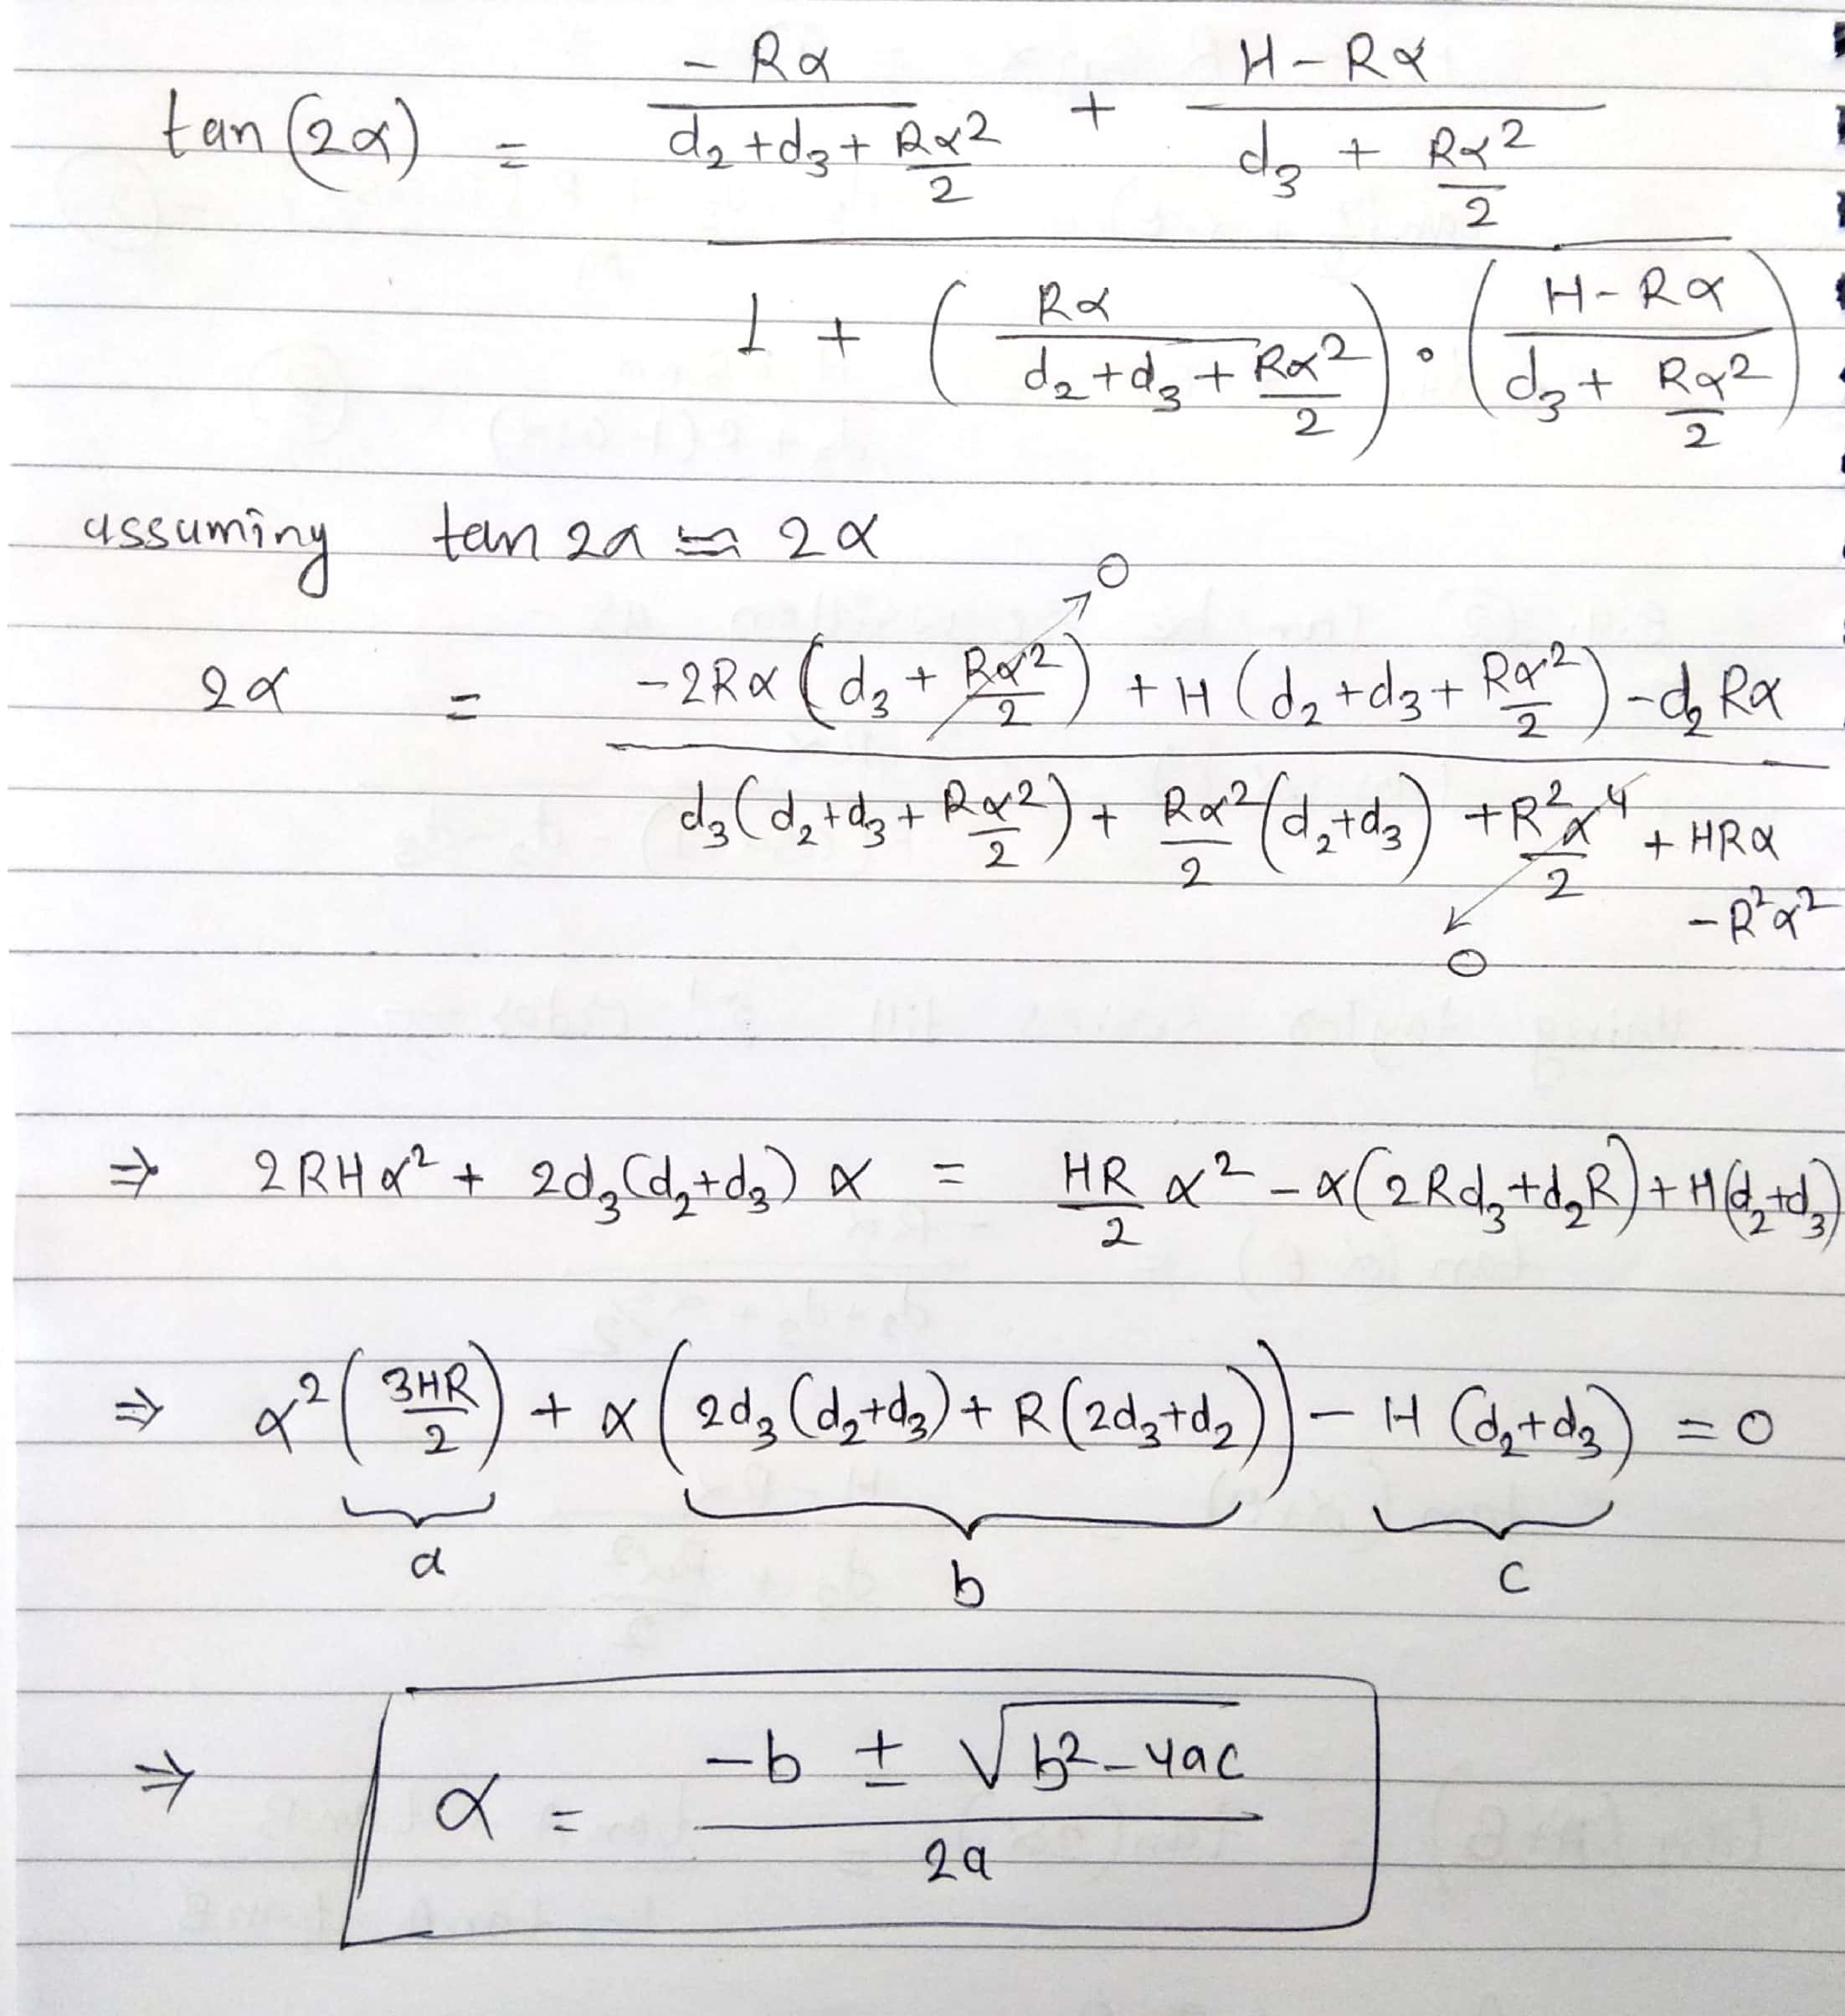 tan(2α) = (-Rα / (d₂+d₃+Rα²/2) + (H-Rα) / (d₃ + Rα²/2)) / (1 + (Rα / (d₂+d₃+Rα²/2)) · ((H-Rα) / (d₃+ Rα²/2)))
assuming tan 2α ≃ 2α
2α = (-2Rα(d₃ + Rα²/2 → 0) + H(d₂+d₃+Rα²/2) -d₂Rα) / (d₃(d₂+d₃+Rα²/2) + Rα²/2(d₂+d₃) + R²α⁴/2 → 0 + HRα - R²α²)
⇒ 2RHα² + 2d₃(d₂+d₃)α = HR/2 α² - α(2Rd₃+d₂R) + H(d₂+d₃)
⇒ α²(3HR/2) + α(2d₃(d₂+d₃) + R(2d₃+d₂)) - H(d₂+d₃) = 0
a b c
⇒ α = (-b ± √(b²-4ac)) / 2a